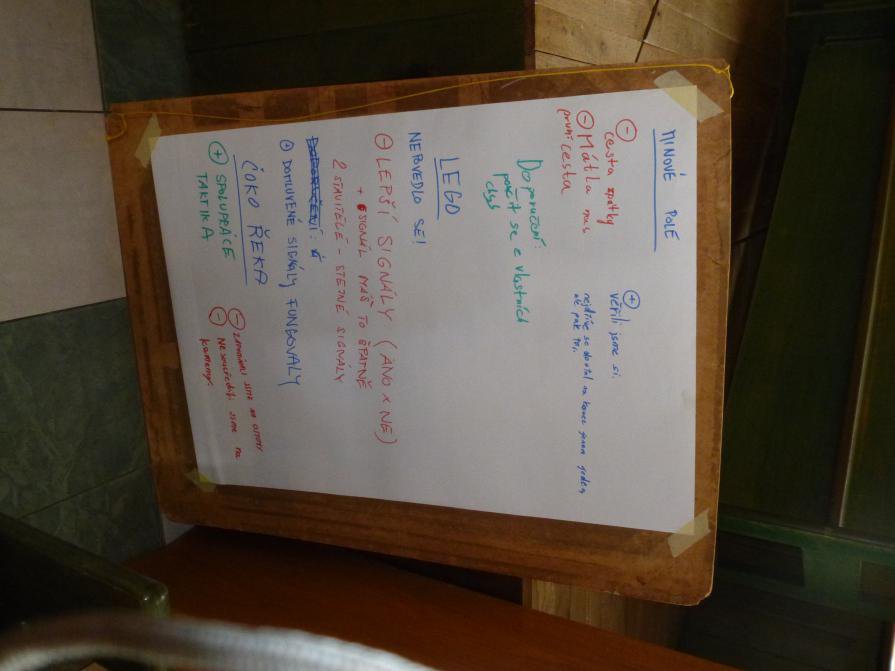 MINOVÉ POLE
⊖ cesta zpátky
⊖ Mátla nás
první cesta
⊕
věřili jsme si,
nejdříve se dostal na konec jenom jeden,
ale pak
Doporučení:
se z vlastních
chyb
LEGO
NEPOVEDLO SE!
⊖ LEPŠÍ SIGNÁLY (ANO x NE)
+ SIGNÁL MÁŠ TO ŠPATNĚ
2 STAVITELÉ - STEJNÉ SIGNÁLY
⊕ DOMLUVENÉ SIGNÁLY FUNGOVALY
ČOKO ŘEKA
⊕ SPOLUPRÁCE
TAKTIKA
⊖ ZAPOMÍNALI JSME NA OSTATNÍ
⊖ Nesoustředili jsme na
kameny